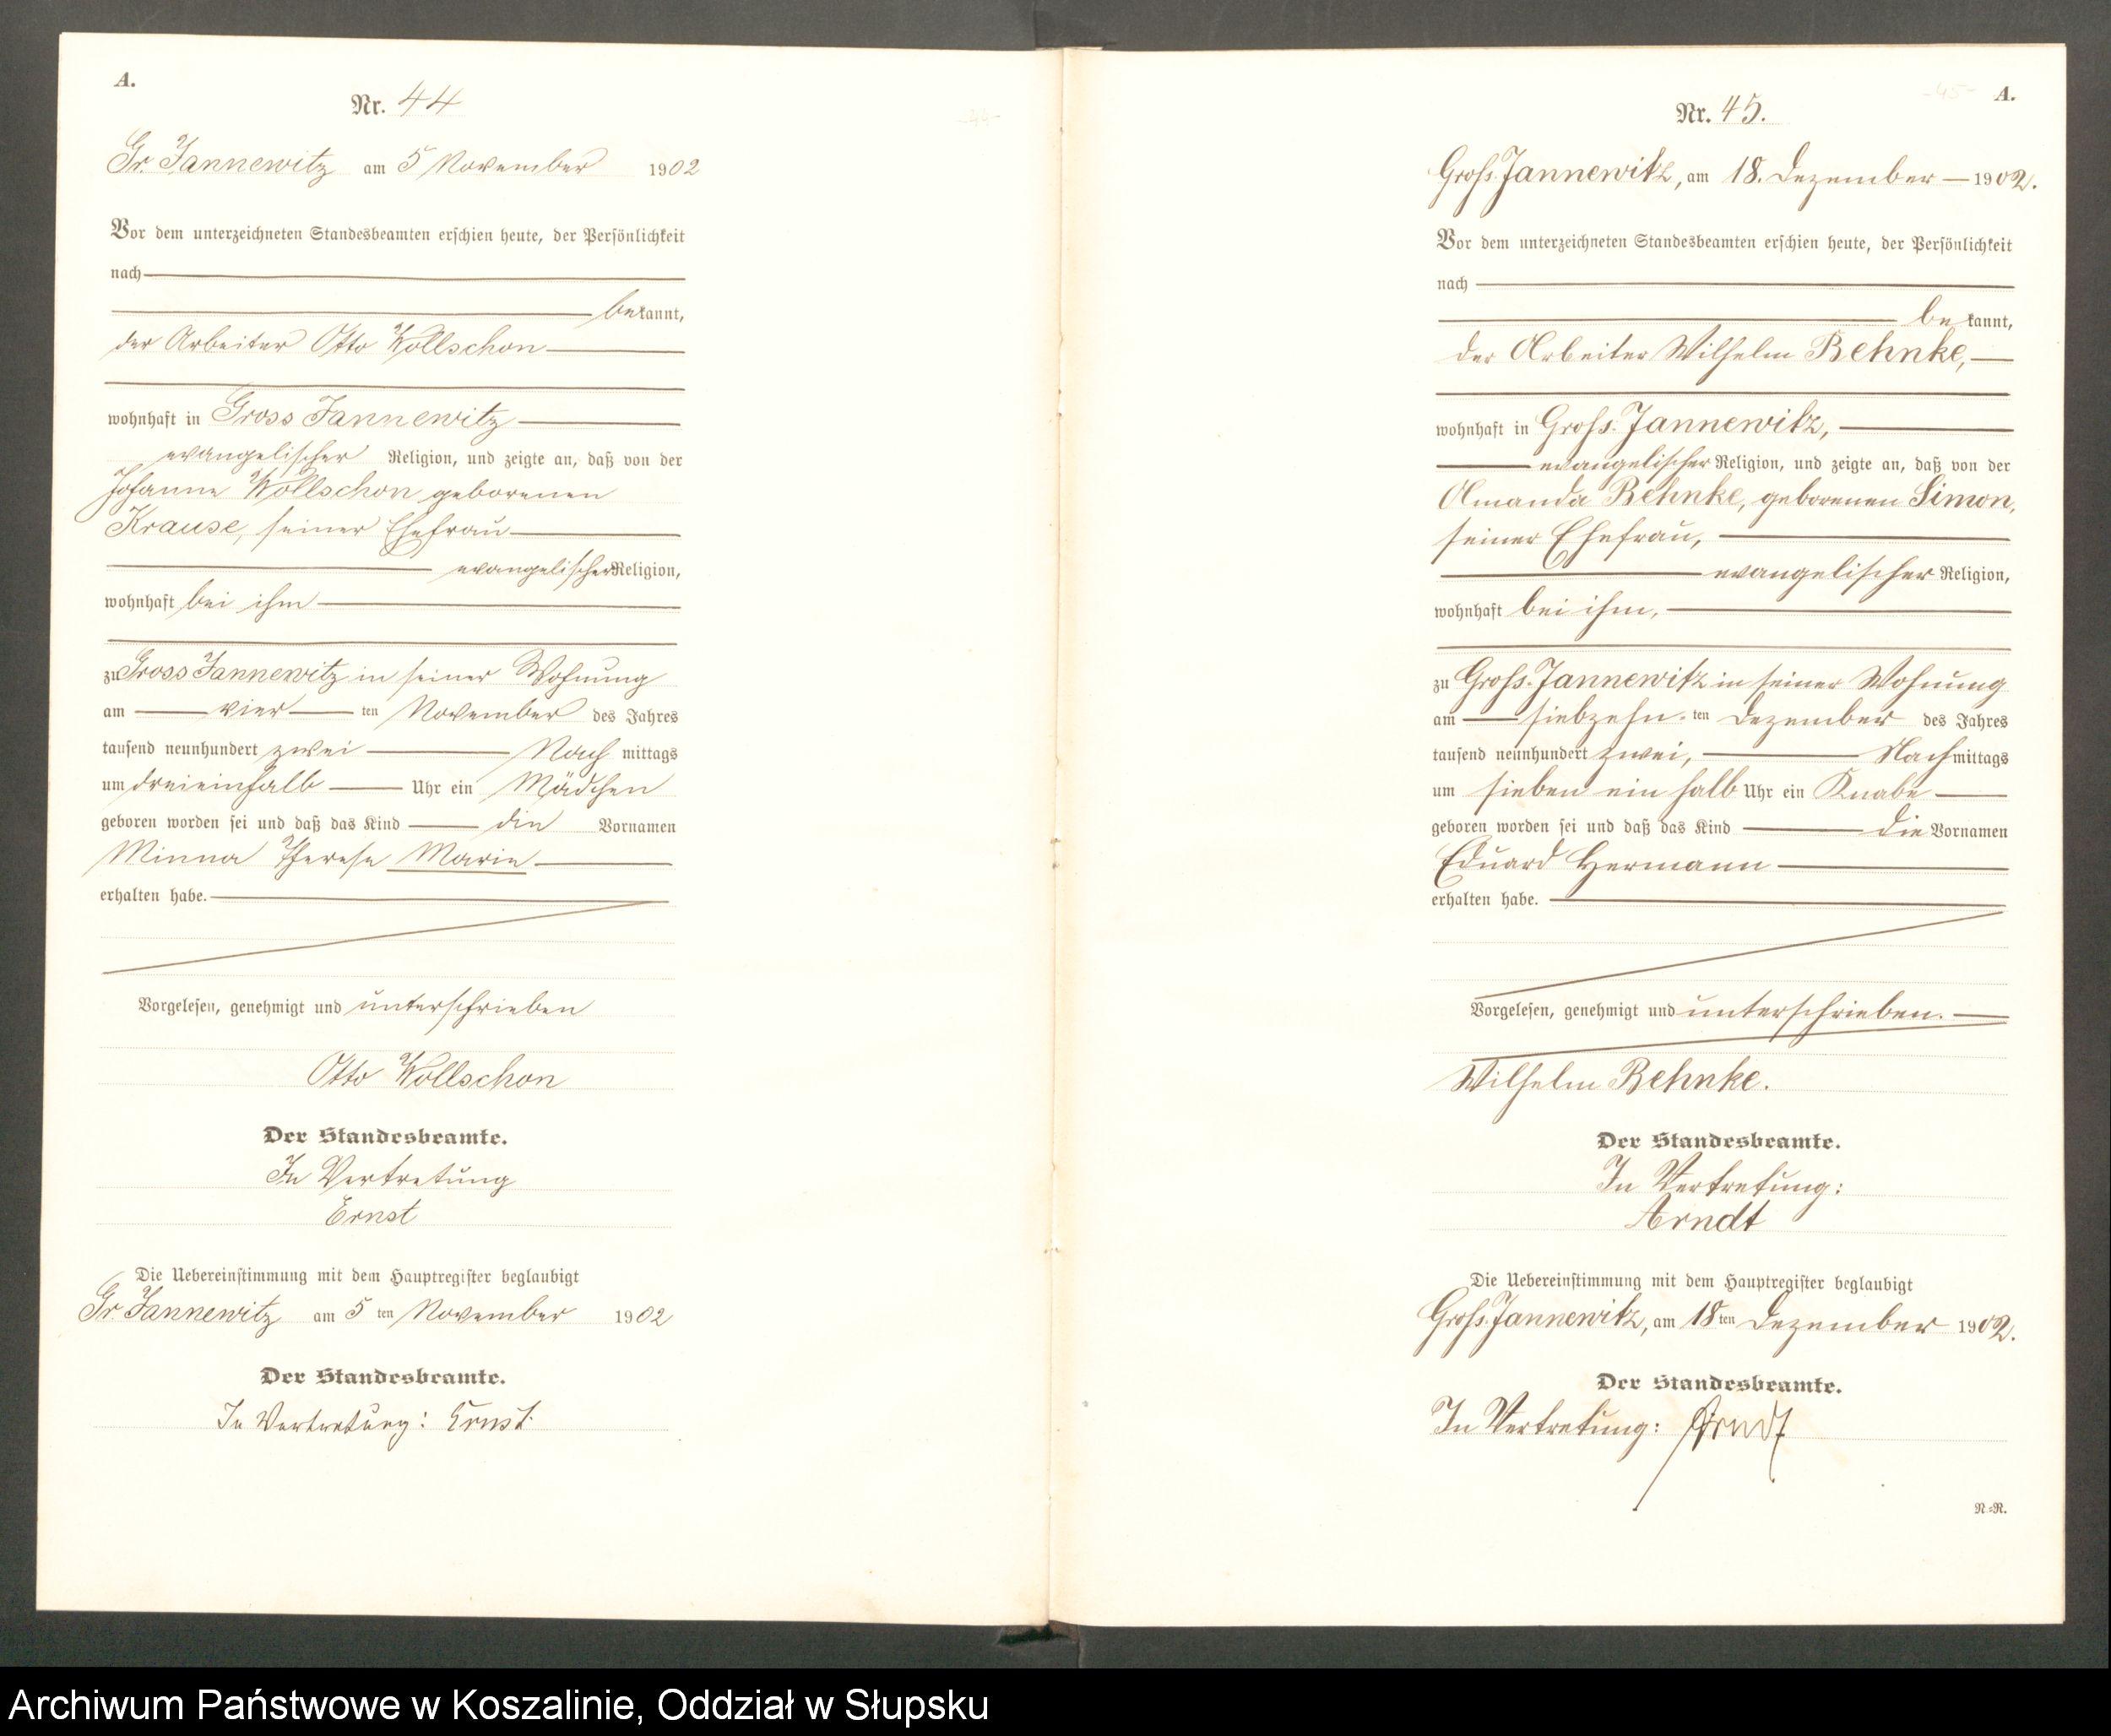 A.
Nr. 44
Gr. Jannewitz am 5 November 1902
Vor dem unterzeichneten Standesbeamten erschien heute, der Persönlichkeit
nach
bekannt,
der Arbeiter Otto Wollschon
wohnhaft in Gross Jannewitz
evangelischer Religion, und zeigte an, daß von der
Johanne Wollschon geborenen
Krause, seiner Ehefrau
evangelischer Religion,
wohnhaft bei ihm
zu Gross Jannewitz in seiner Wohnung
am vier ten November des Jahres
tausend neunhundert zwei Nach mittags
um dreieinhalb Uhr ein Mädchen
geboren worden sei und daß das Kind die Vornamen
Minna Therese Marie
erhalten habe.
Vorgelesen, genehmigt und unterschrieben
Otto Wollschon
Der Standesbeamte.
In Vertretung
Ernst
Die Uebereinstimmung mit dem Hauptregister beglaubigt
Gr. Jannewitz am 5 ten November 1902
Der Standesbeamte.
In Vertretung: Ernst.
-44-
-45-
A.
Nr. 45.
Groß-Jannewitz, am 18. Dezember 1902.
Vor dem unterzeichneten Standesbeamten erschien heute, der Persönlichkeit
nach
bekannt,
der Arbeiter Wilhelm Behnke,
wohnhaft in Groß-Jannewitz,
evangelischer Religion, und zeigte an, daß von der
Amanda Behnke, geborenen Simon,
seiner Ehefrau,
evangelischer Religion,
wohnhaft bei ihm,
zu Groß-Jannewitz in seiner Wohnung
am siebzehn ten Dezember des Jahres
tausend neunhundert zwei, Nachmittags
um sieben ein halb Uhr ein Knabe
geboren worden sei und daß das Kind die Vornamen
Eduard Hermann
erhalten habe.
Vorgelesen, genehmigt und unterschrieben.
Wilhelm Behnke.
Der Standesbeamte.
In Vertretung:
Arndt
Die Uebereinstimmung mit dem Hauptregister beglaubigt
Groß-Jannewitz, am 18ten Dezember 1902.
Der Standesbeamte.
In Vertretung: Arndt
N=R.
Archiwum Państwowe w Koszalinie, Oddział w Słupsku